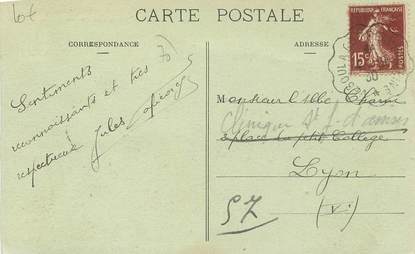 CARTE POSTALE
CORRESPONDANCE
ADRESSE
REPUBLIQUE FRANÇAISE
15c
POSTES
Sentiments
reconnaissants et très
respectueux Jules
Monsieur l'Abbé
Clinique St
place du petit Collège
Lyon
(V.)
57